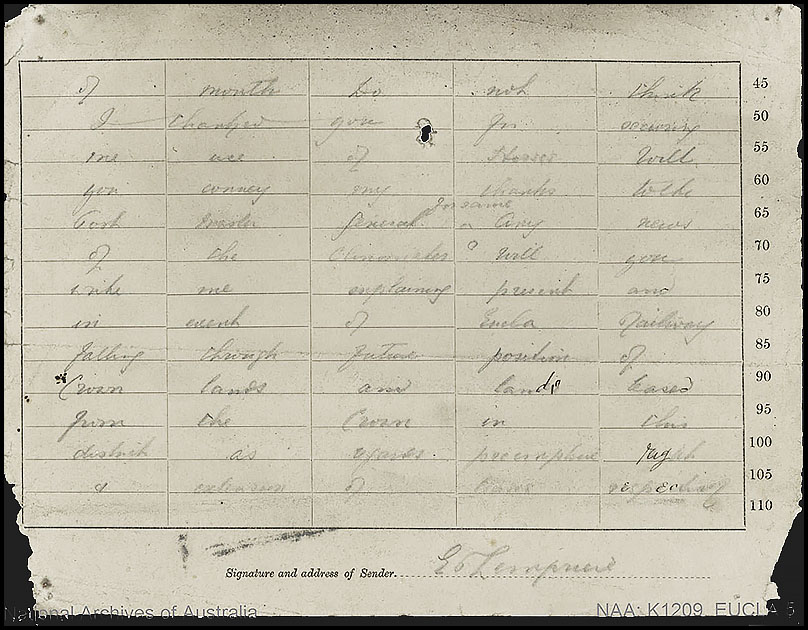 of month Do not think 45
I thanked you for securing 50
me use of Horses Will 55
you convey my thanks to the 60
for same
Post Master General. or any news 65
of the ? Will you 70
write me explaining present and 75
in event of Eucla Railway 80
falling through future position of 85
Crown lands and lands leased 90
from the Crown in this 95
district as regards preemptive right 100
& extension of lease respecting 105
110
Signature and address of Sender
National Archives of Australia
NAA: K1209, EUCLA 5